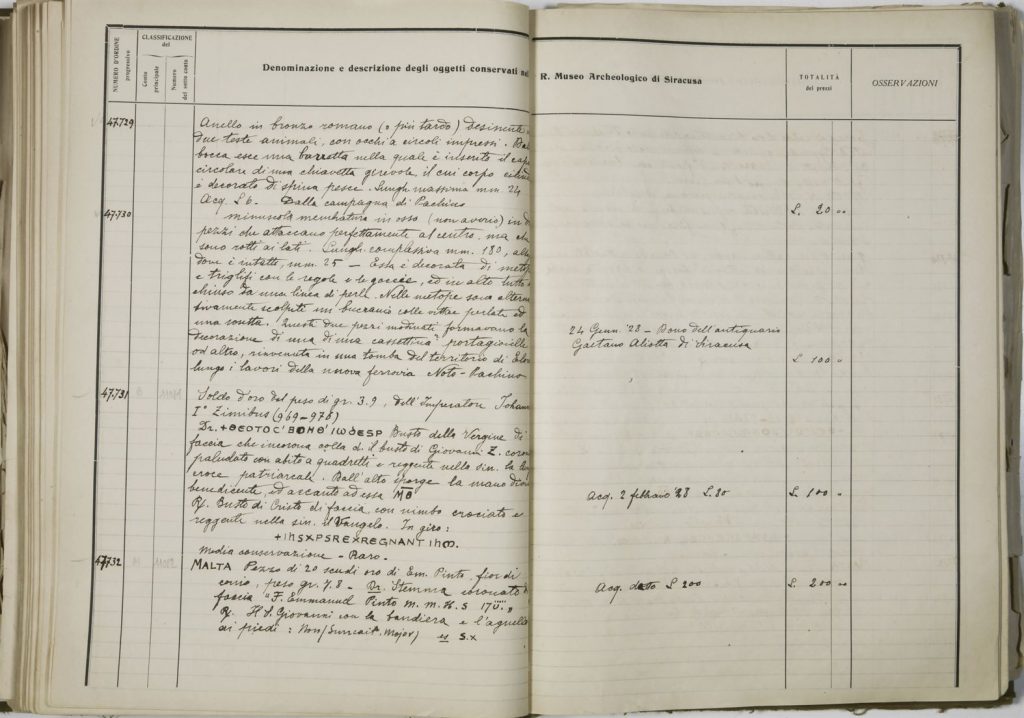 NUMERO D'ORDINE progressivo
CLASSIFICAZIONE del
Conto principale
Numero del sotto conto
Denominazione e descrizione degli oggetti conservati nel R. Museo Archeologico di Siracusa
TOTALITÀ dei prezzi
OSSERVAZIONI
47.729
Anello in bronzo romano (o più tardo) desinente
due teste animali, con occhi a circoli impressi.
bocca esce una barretta nella quale è inserito il capo
circolare di una chiavetta girevole, il cui corpo
è decorato di spina pesce. Lungh. massima mm. 24
Acq. £ 6. Dalla campagna di Pachino
£. 20
47.730
minuscola in osso (non avorio) in
pezzi che attaccano perfettamente al centro, ma che
sono rotti ai lati. Lungh. complessiva mm. 180,
dove è intatta, mm. 25 — Essa è decorata di metope
e triglifi con le regole e le gocce, ed in alto tutto
chiuso da una linea di perle. Nelle metope sono alterna
tivamente scolpiti un bucranio colle vittae perlate ed
una rosetta. Questi due pezzi modinati formavano la
decorazione di una di una cassettina portagioielle
od altro, rinvenuta in una tomba del territorio di
lungo i lavori della nuova ferrovia Noto-Pachino
24 Genn. '28 — Dono dell'antiquario
Gaetano Aliotta di Siracusa
£. 100
47.731
Soldo d'oro del peso di gr. 3.9, dell'Imperatore Johann
I° Zimibus (969-976)
Dr. +ΘEOTOC' BOHΘ' IWδESP Busto della Vergine di
faccia che incorona colla d. il busto di Giovanni Z. coron
paludato con abito a quadretti e reggente nella sin. la
croce patriarcale. Dall'alto sporge la mano divina
benedicente, ed accanto ad essa MΘ
R. Busto di Cristo di faccia, con nimbo crociato e
reggente nella sin. il Vangelo. In giro:
+IhSXPSREXREGNANTIhM.
Media conservazione - Raro.
Acq. 2 febbraio '28 £. 80
£. 100
47.732
MALTA Pezzo di 20 scudi oro di Em. Pinto, fior di
conio, peso gr. 7.8 - Dr. Stemma coronato di
faccia "F. Emmanuel Pinto M. M. H. S
R. S. Giovanni con la bandiera e l'agnello
ai piedi: Non Surrexit Major S. X
Acq. dato £ 200
£. 200